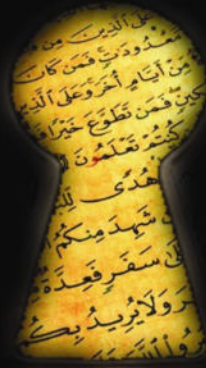 عَلَى ٱلَّذِينَ مِن
مَّعْدُودَٰتٍ فَمَن كَانَ
مِّنْ أَيَّامٍ أُخَرَ وَعَلَى ٱلَّذِ
فَمَن تَطَوَّعَ خَيْرًا
كُنتُمْ تَعْلَمُونَ
هُدًى لِّل
شَهِدَ مِنكُمُ
سَفَرٍ فَعِدَّةٌ
وَلَا يُرِيدُ بِكُ